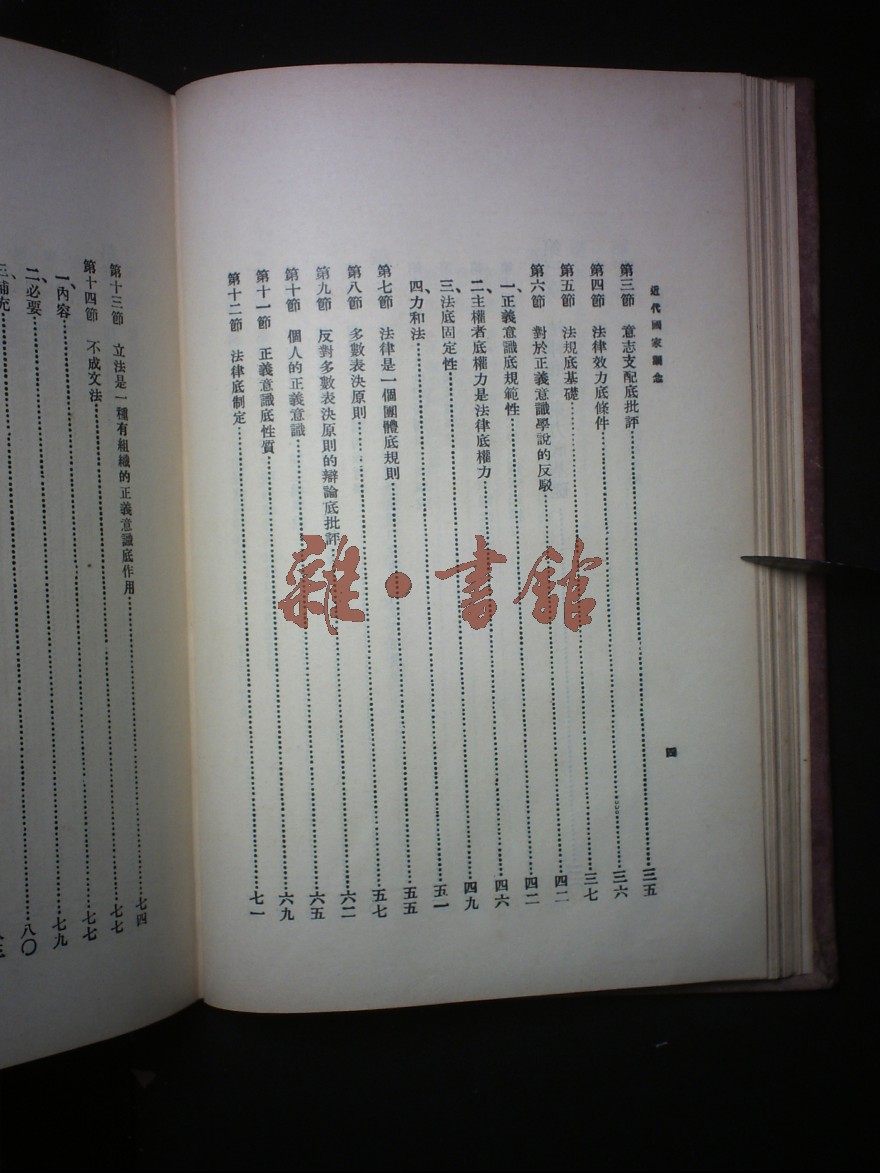 近代國家觀念
四
第三節 意志支配底批評……三五
第四節 法律效力底條件……三六
第五節 法規底基礎……三七
第六節 對於正義意識學說的反駁……四二
一、正義意識底規範性……四二
二、主權者底權力是法律底權力……四六
三、法底固定性……四九
四、力和法……五一
第七節 法律是一個團體底規則……五五
第八節 多數表決原則……五七
第九節 反對多數表決原則的辯論底批評……六二
第十節 個人的正義意識……六五
第十一節 正義意識底性質……六九
第十二節 法律底制定……七一
第十三節 立法是一種有組織的正義意識底作用……七四
第十四節 不成文法……七七
一、內容……七七
二、必要……七九
三、補充……八〇
雜·書館